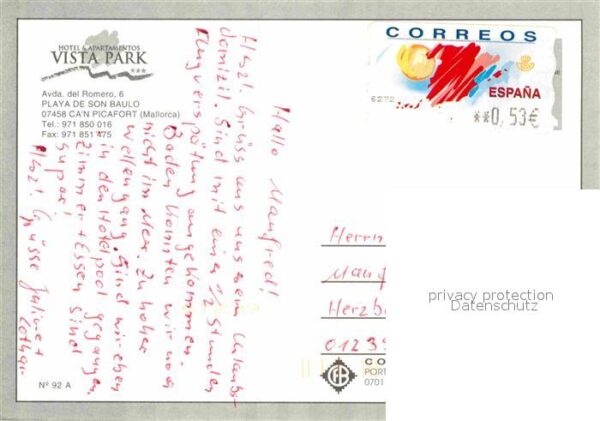 HOTEL & APARTAMENTOS
VISTA PARK
Avda. del Romero, 6
PLAYA DE SON BAULO
07458 CA'N PICAFORT (Mallorca)
Tel.: 971 850 016
Fax: 971 851 475
Hallo Manfred!
Herzl. Grüsse aus unserem Urlaubs-
domizil. Sind mit einer 1/2 Stunden
Flugverspätung angekommen.
Baden konnten wir noch
nicht im Meer. Zu hoher
Wellengang. Sind wir eben
in den Hotelpool gegangen.
Zimmer + Essen sind
super!
Herzl. Grüsse
Lothar
CORREOS
ESPAÑA
6272
**0,53€
Herrn
Manf
Herzb
privacy protection
Datenschutz
Nº 92 A
CO
POR
0701